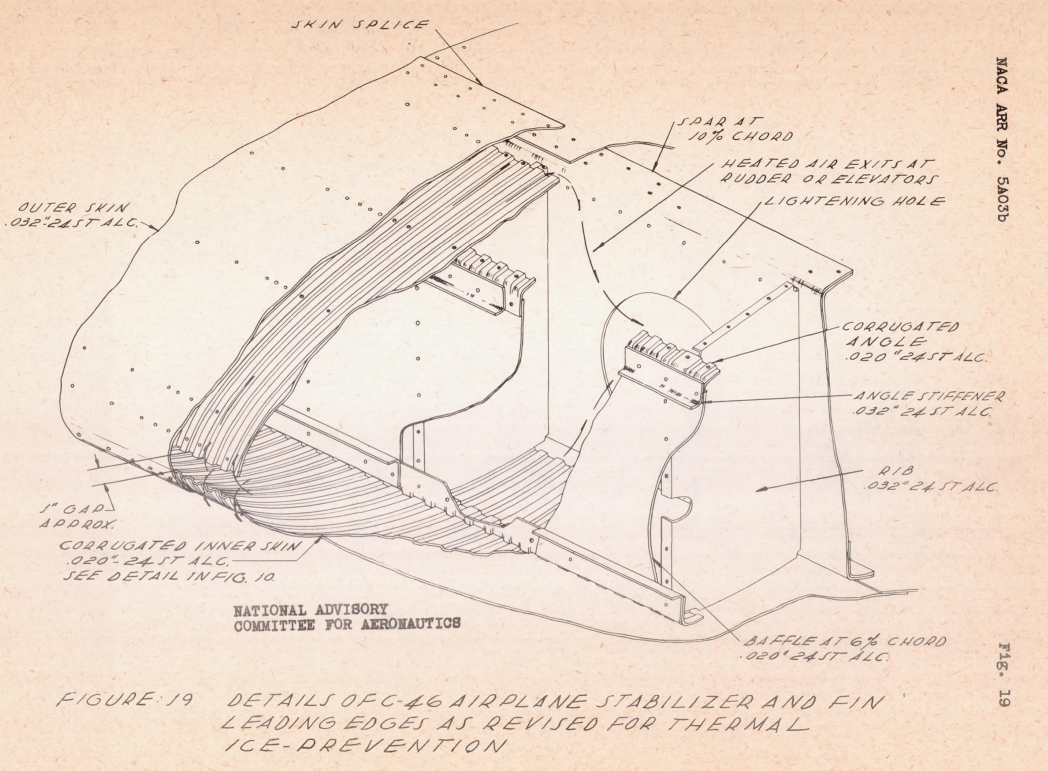 SKIN SPLICE
SPAR AT
10% CHORD
HEATED AIR EXITS AT
RUDDER OR ELEVATORS
LIGHTENING HOLE
OUTER SKIN
.032"-24ST ALC.
CORRUGATED
ANGLE
.020" 24ST ALC.
ANGLE STIFFENER
.032" 24 ST ALC.
RIB
.032" 24 ST ALC.
1" GAP
APPROX.
CORRUGATED INNER SKIN
.020"-24 ST ALC.
SEE DETAIL IN FIG. 10.
NATIONAL ADVISORY
COMMITTEE FOR AERONAUTICS
BAFFLE AT 6% CHORD
.020" 24ST ALC.
FIGURE: 19 DETAILS OF C-46 AIRPLANE STABILIZER AND FIN
LEADING EDGES AS REVISED FOR THERMAL
ICE-PREVENTION
NACA ARR No. 5A03b
Fig. 19